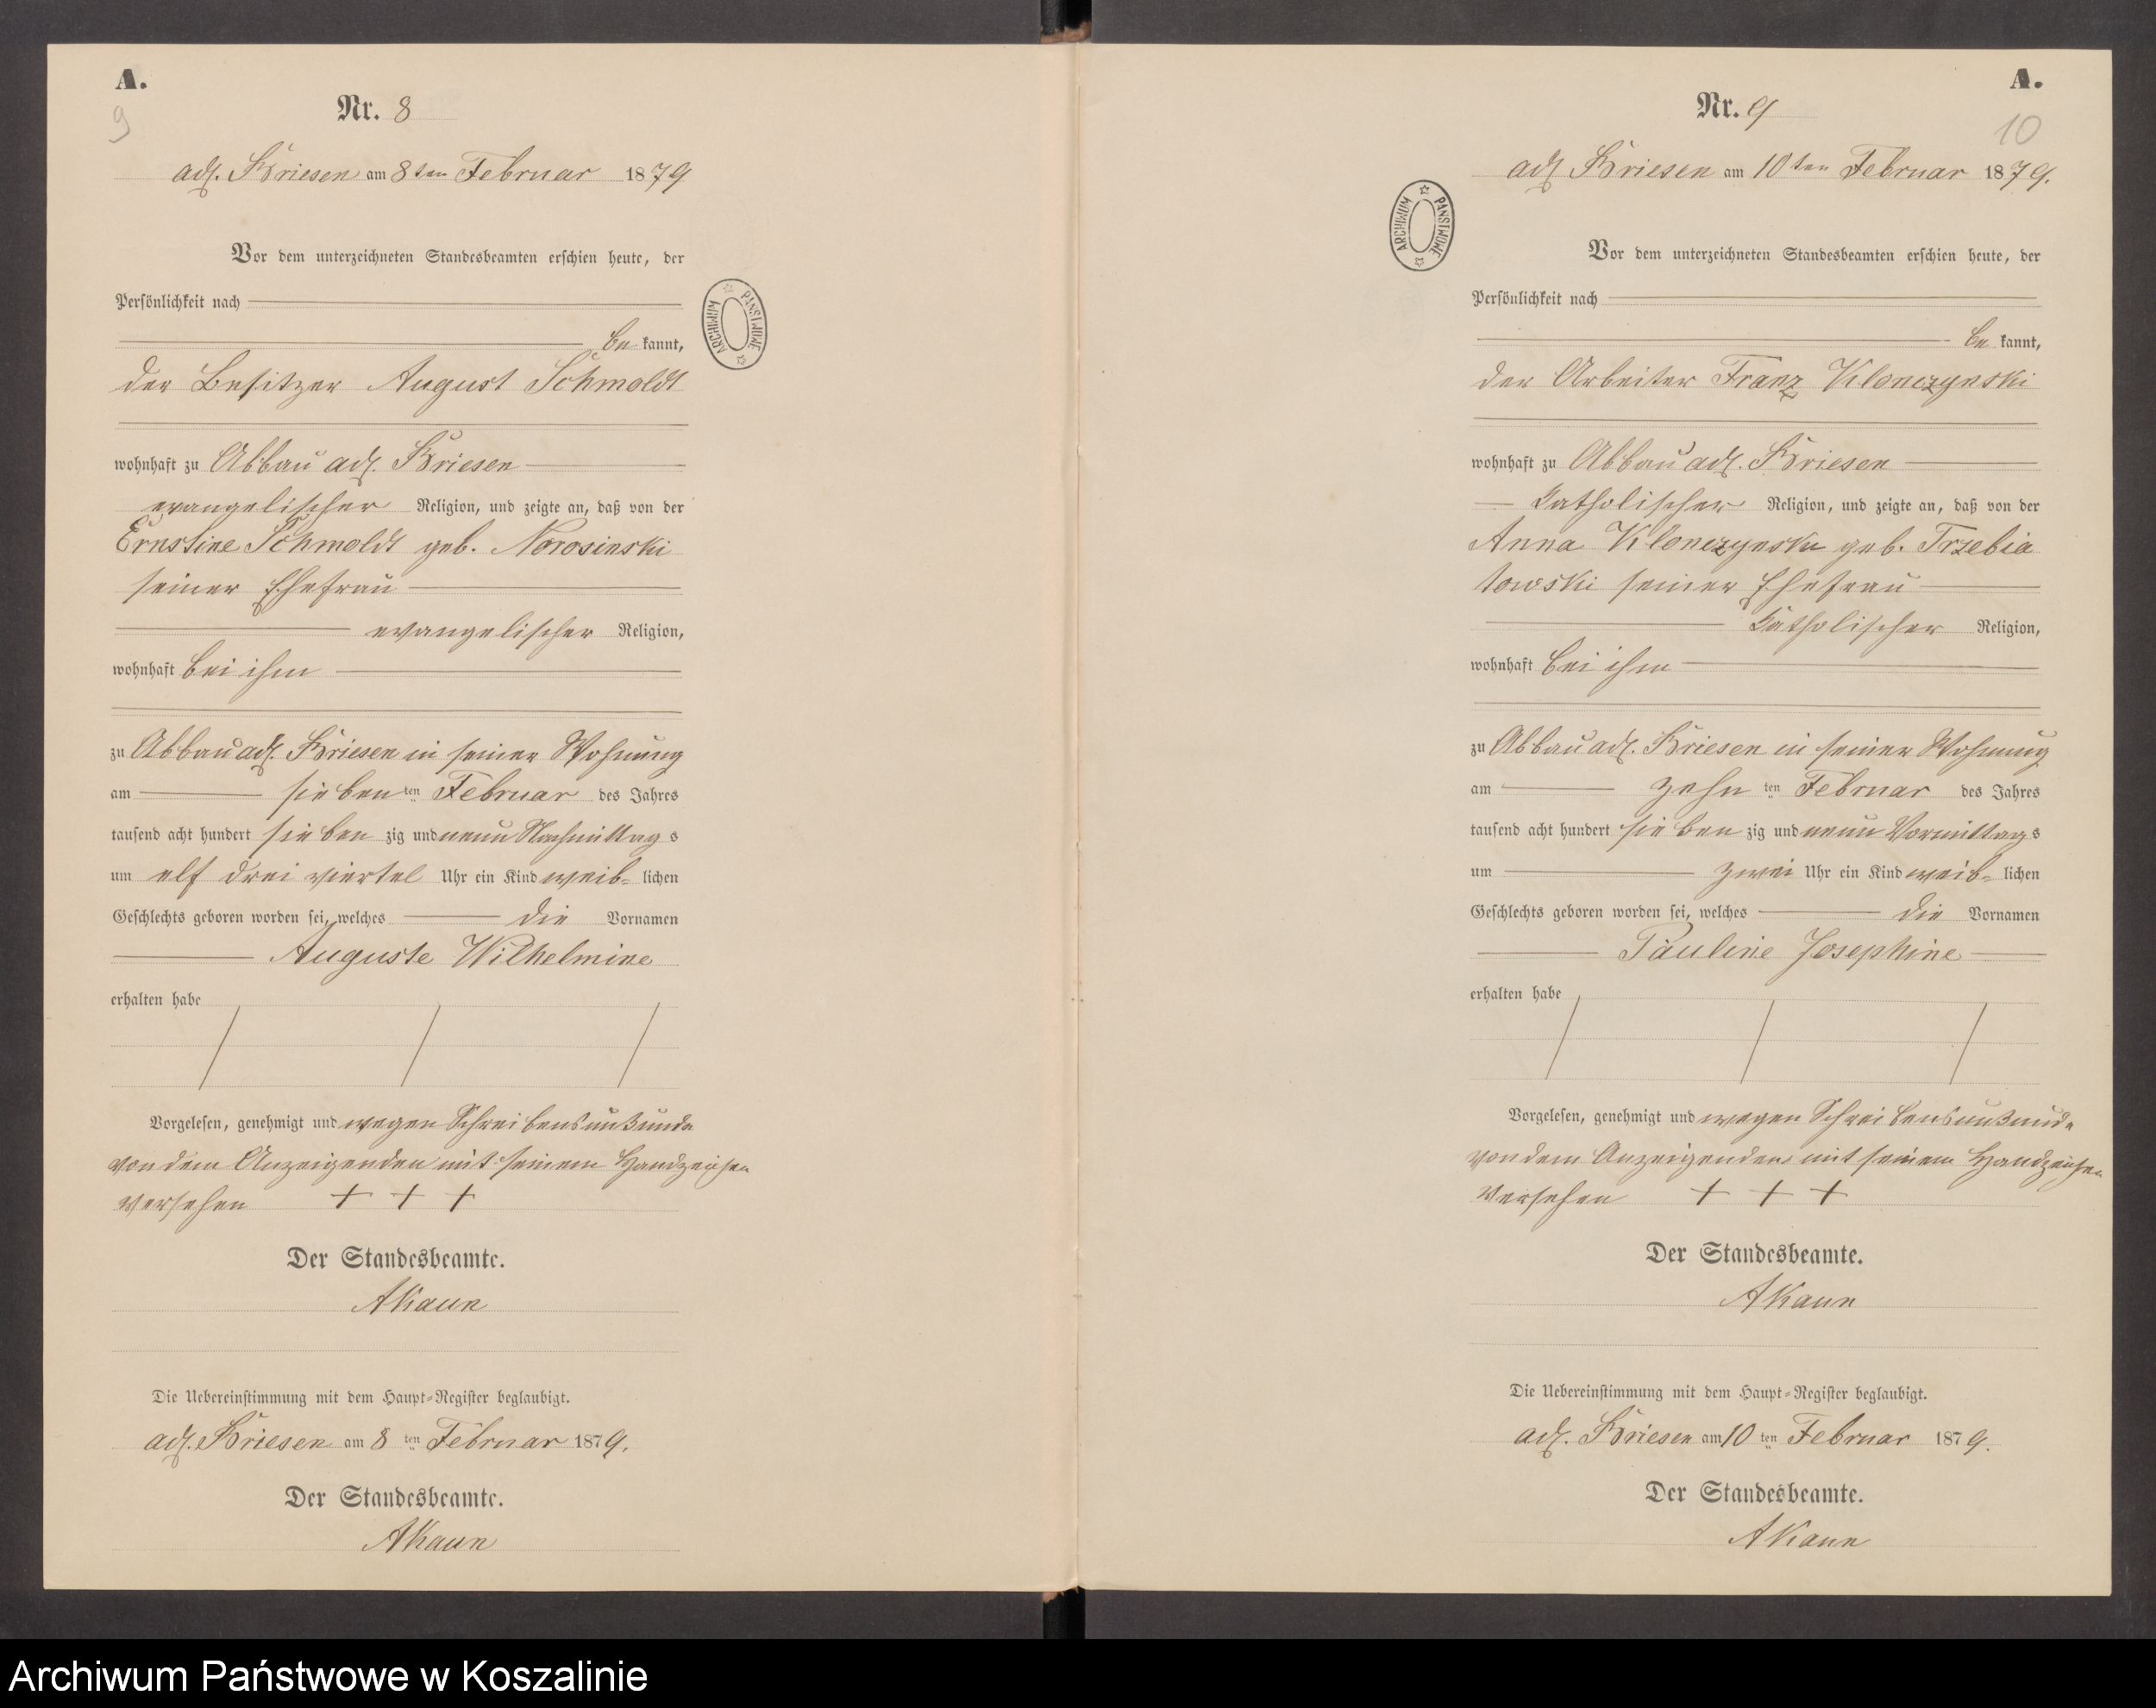 A.
9
Nr. 8
adl. Briesen am 8ten Februar 1879
Vor dem unterzeichneten Standesbeamten erschien heute, der
Persönlichkeit nach
be kannt,
der Besitzer August Schmoldt
wohnhaft zu Abbau adl. Briesen
evangelischer Religion, und zeigte an, daß von der
Ernstine Schmoldt geb. Norosinski
seiner Ehefrau
evangelischer Religion,
wohnhaft bei ihm
zu Abbau adl. Briesen in seiner Wohnung
am sieben ten Februar des Jahres
tausend acht hundert sieben zig und neun Nachmittag s
um elf drei viertel Uhr ein Kind weib- lichen
Geschlechts geboren worden sei, welches die Vornamen
Auguste Wilhelmine
erhalten habe
Vorgelesen, genehmigt und wegen Schreibensunkunde
von dem Anzeigenden mit seinem Handzeichen
versehen + + +
Der Standesbeamte.
AKaun
Die Uebereinstimmung mit dem Haupt-Register beglaubigt.
adl. Briesen am 8 ten Februar 1879.
Der Standesbeamte.
AKaun
ARCHIWUM PAŃSTWOWE
A.
10
Nr. 9
adl Briesen am 10ten Februar 1879.
Vor dem unterzeichneten Standesbeamten erschien heute, der
Persönlichkeit nach
be kannt,
der Arbeiter Franz Klonczynski
wohnhaft zu Abbau adl. Briesen
katholischer Religion, und zeigte an, daß von der
Anna Klonczynska geb. Trzebia
towski seiner Ehefrau
katholischer Religion,
wohnhaft bei ihm
zu Abbau adl. Briesen in seiner Wohnung
am zehn ten Februar des Jahres
tausend acht hundert sieben zig und neun Vormittag s
um zwei Uhr ein Kind weib- lichen
Geschlechts geboren worden sei, welches die Vornamen
Pauline Josephine
erhalten habe
Vorgelesen, genehmigt und wegen Schreibensunkunde
von dem Anzeigenden mit seinem Handzeichen
versehen + + +
Der Standesbeamte.
AKaun
Die Uebereinstimmung mit dem Haupt-Register beglaubigt.
adl. Briesen am 10 ten Februar 1879.
Der Standesbeamte.
AKaun
ARCHIWUM PAŃSTWOWE
Archiwum Państwowe w Koszalinie